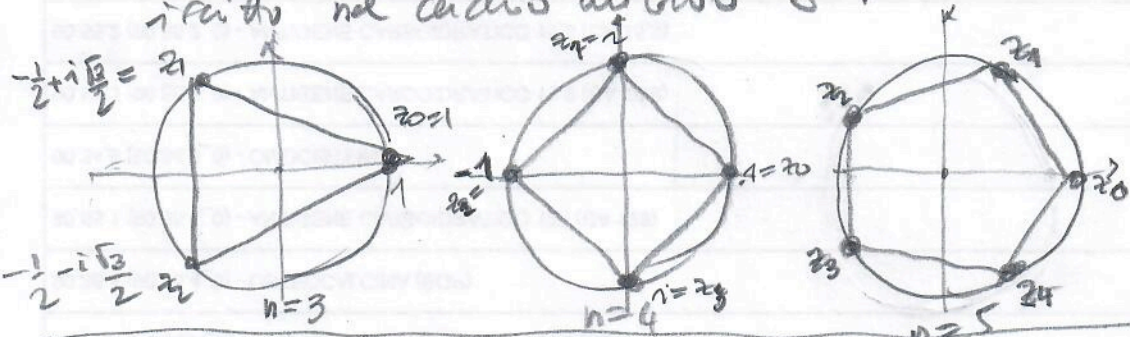 iscritto nel
-1/2 + i√3/2 = z1
z0=1
1
-1/2 - i√3/2 z2
n=3
z1=i
-1
z2=
1=z0
i=z3
n=4
z1
z2
z0
z3
z4
n=5